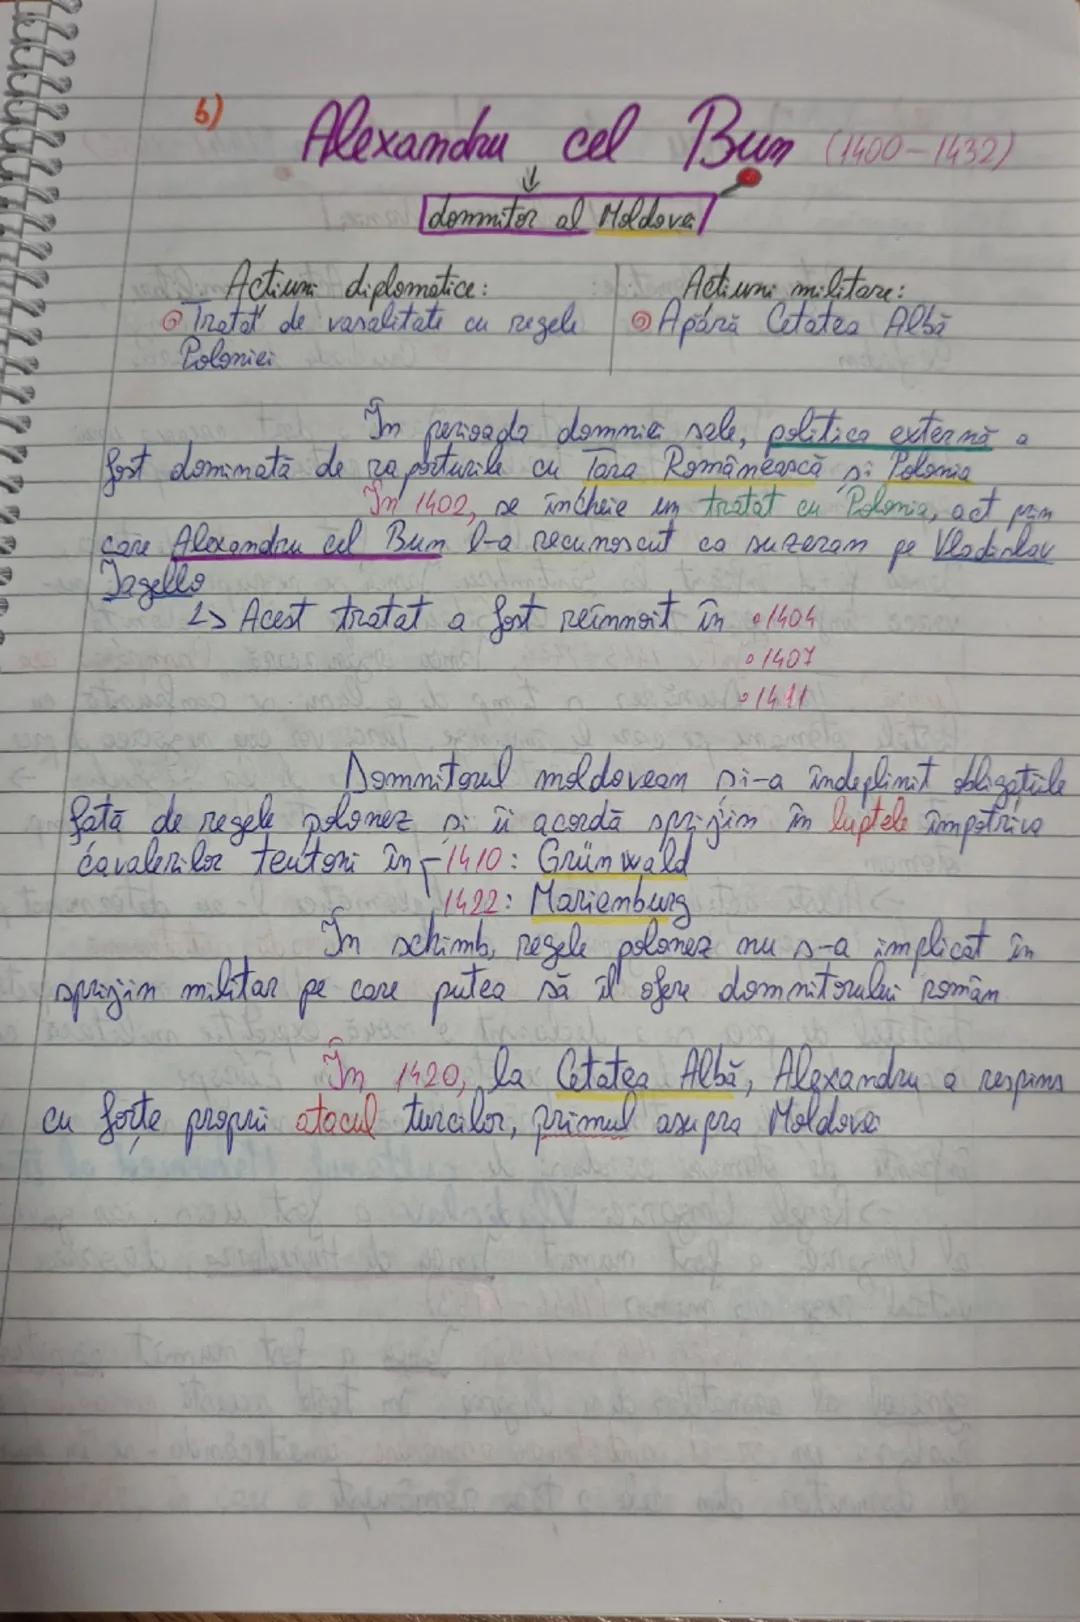 b)
Alexandru cel Bun (1400-1432)
↓
domnitor al Moldovei
Acțiuni diplomatice:
Tratat de vasalitate cu regele
Poloniei
Acțiuni militare:
Apără Cetatea Albă
În perioada domniei sale, politica externă a
fost dominată de raporturile cu Țara Românească și Polonia
În 1402, se încheie un tratat cu Polonia, act prin
care Alexandru cel Bun l-a recunoscut ca suzeran pe Vladislav
Jagello
↳ Acest tratat a fost reînnoit în •1404
•1407
•1411
Domnitorul moldovean și-a îndeplinit obligațiile
față de regele polonez și îi acordă sprijin în luptele împotriva
cavalerilor teutoni în - 1410: Grünwald
1422: Marienburg
În schimb, regele polonez nu s-a implicat în
sprijin militar pe care putea să îl ofere domnitorului român
În 1420, la Cetatea Albă, Alexandru a respins
cu forțe proprii atacul turcilor, primul asupra Moldovei